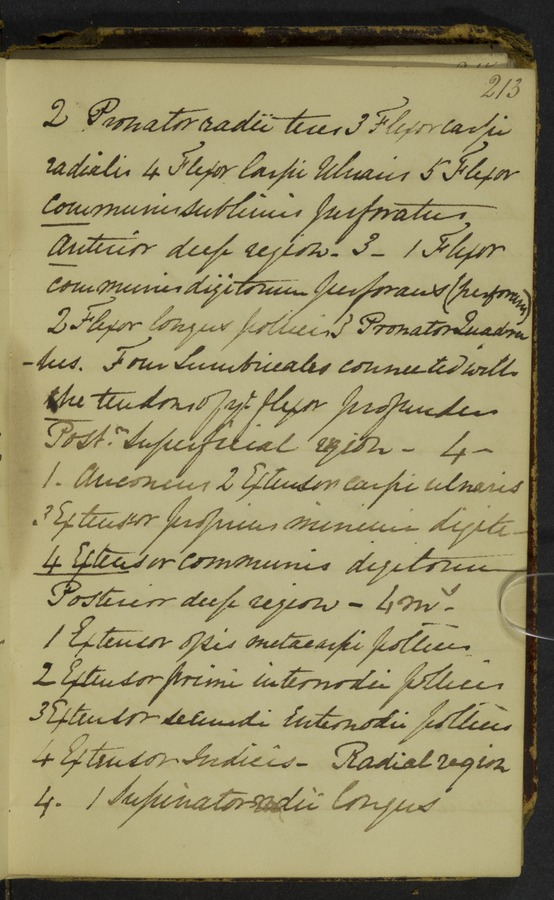 213
2 Pronator radii teres 3 Flexor carpi
radialis 4 Flexor Carpi Ulnaris 5 Flexor
Communis sublimis perforatus
Anterior deep region - 3 - 1 Flexor
communis digitorum perforans (perforans)
2 Flexor longus pollicis 3 Pronator Quadra
-tus. Four Lumbricales connected with
the tendons of ye flexor profundus
Postr. Superficial region - 4 -
1. Anconeus 2 Extensor carpi ulnaris
3 Extensor proprius minimi digite
4 Extensor communis digitorum
Posterior deep region - 4 ms -
1 Extensor opis metacarpi pollicis
2 Extensor primi internodii pollicis
3 Extensor secundi internodii pollicis
4 Extensor Indicis - Radial region
4. 1 Supinator radii longus